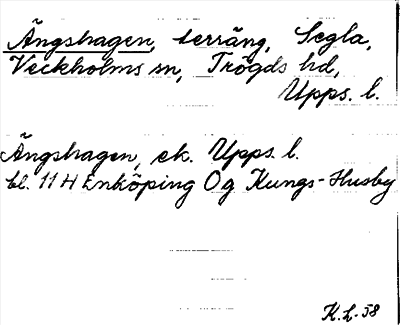 Ängshagen, terräng, Segla,
Veckholms sn, Trögds hd,
Upps. l.
Ängshagen, ek. Upps. l.
bl. 11 H Enköping Og Kungs-Husby
K.L-58